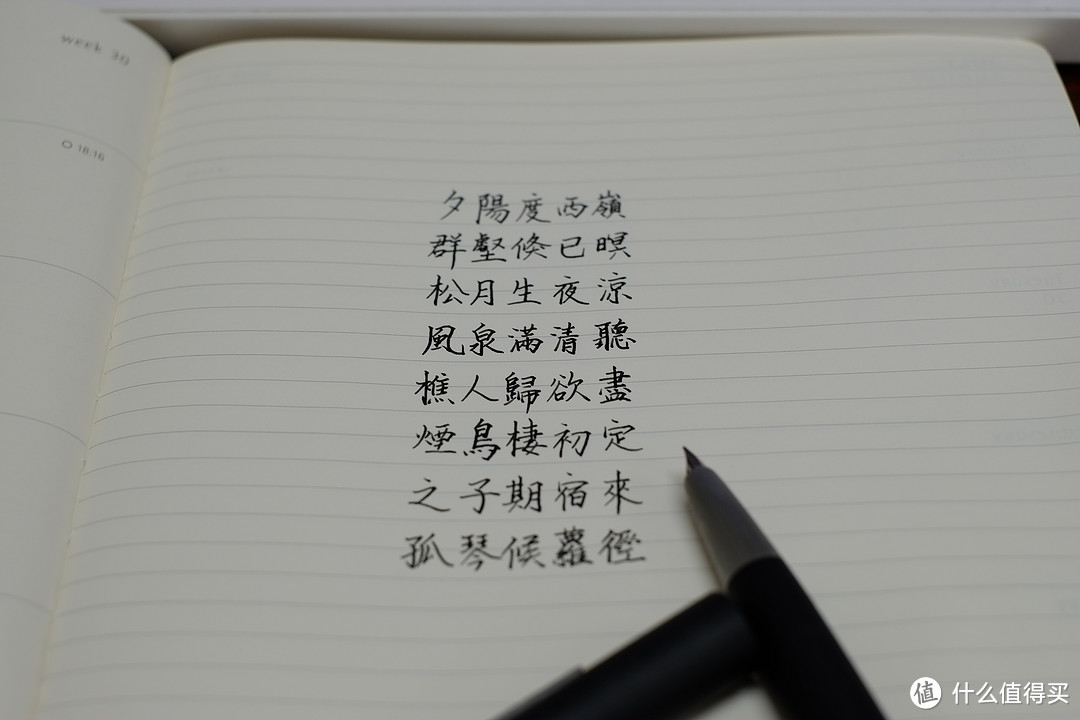 week 30
18:16
夕陽度西嶺
群壑倏已暝
松月生夜涼
風泉滿清聽
樵人歸欲盡
煙鳥棲初定
之子期宿來
孤琴候蘿徑
值 什么值得买